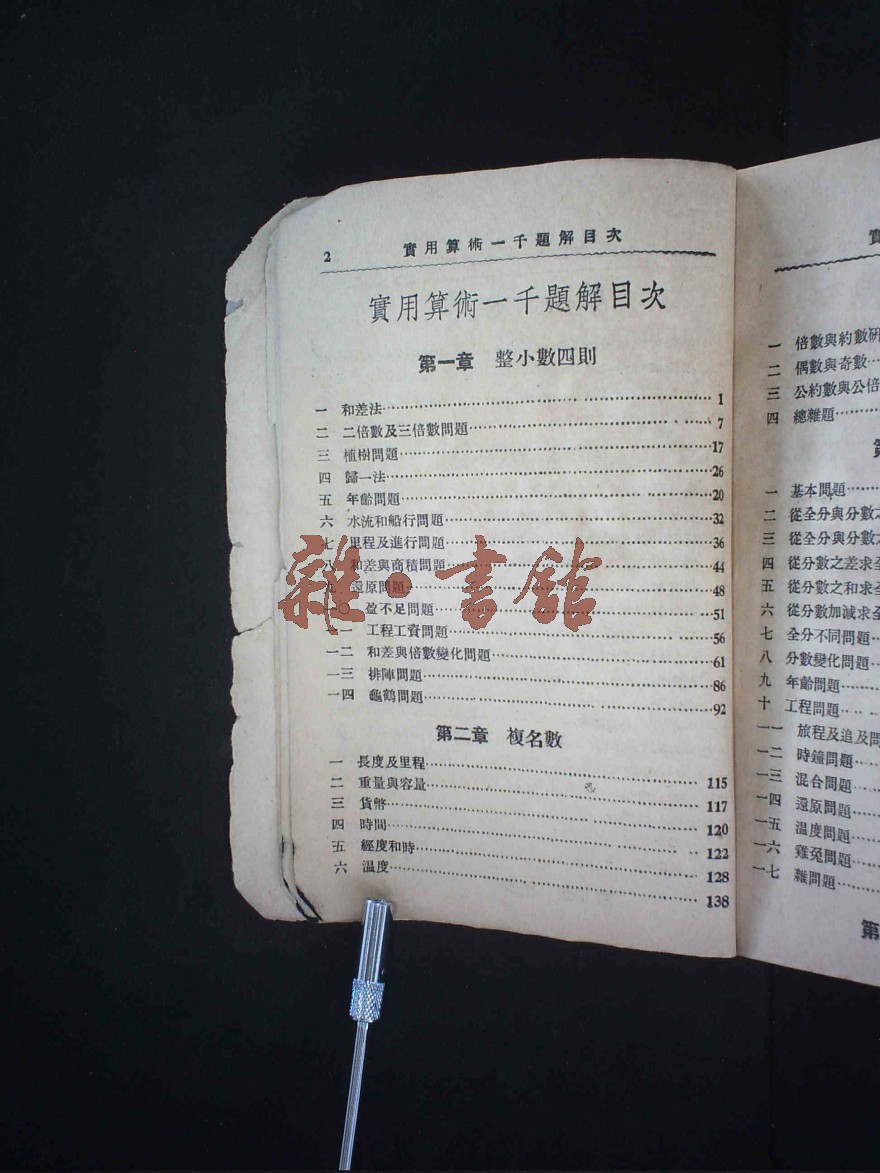 2 實用算術一千題解目次
實用算術一千題解目次
第一章 整小數四則
一 和差法 1
二 二倍數及三倍數問題 7
三 植樹問題 17
四 歸一法 26
五 年齡問題 20
六 水流和船行問題 32
七 里程及進行問題 36
八 和差與商積問題 44
九 還原問題 48
一〇 盈不足問題 51
一一 工程工資問題 56
一二 和差與倍數變化問題 61
一三 排陣問題 86
一四 龜鶴問題 92
第二章 複名數
一 長度及里程 115
二 重量與容量 117
三 貨幣 120
四 時間 122
五 經度和時 128
六 溫度 138
雜·書館
實
一 倍數與約數研
二 偶數與奇數
三 公約數與公倍
四 總雜題
第
一 基本問題
二 從全分與分數之
三 從全分與分數之
四 從分數之差求全
五 從分數之和求全
六 從分數加減求全
七 全分不同問題
八 分數變化問題
九 年齡問題
十 工程問題
一一 旅程及追及問
一二 時鐘問題
一三 混合問題
一四 還原問題
一五 溫度問題
一六 雞兔問題
一七 雜問題
第